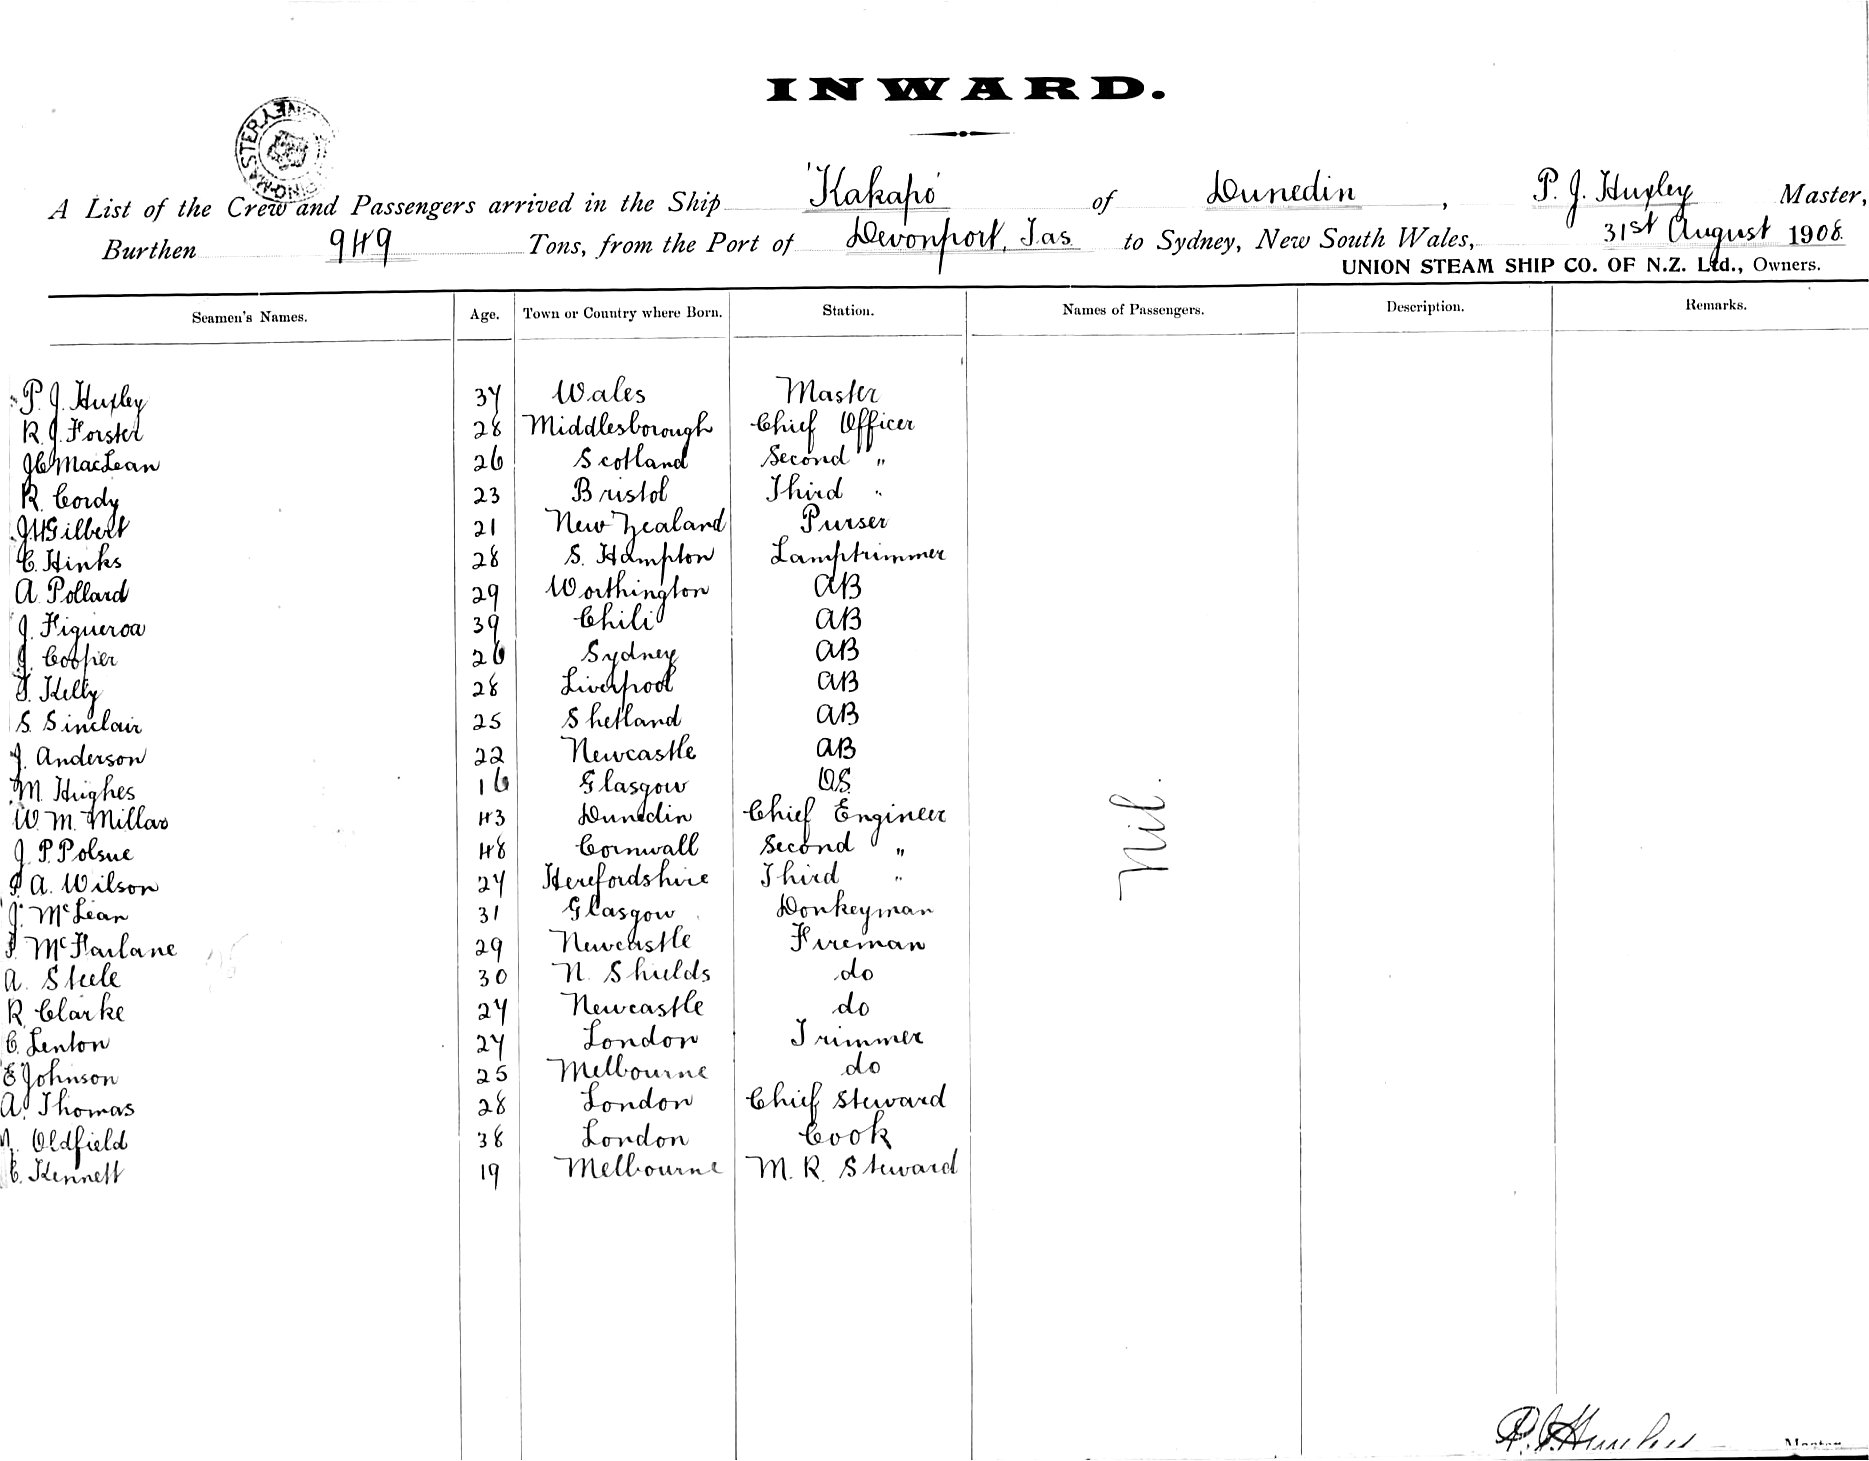 INWARD.
A List of the Crew and Passengers arrived in the Ship 'Kakapo' of Dunedin, P. J. Huxley Master,
Burthen 949 Tons, from the Port of Devonport, Tas to Sydney, New South Wales, 31st August 1908
UNION STEAM SHIP CO. OF N.Z. Ltd., Owners.
Seamen's Names. Age. Town or Country where Born. Station. Names of Passengers. Description. Remarks.
P. J. Huxley 37 Wales Master
R. J. Forster 28 Middlesborough Chief Officer
J C MacLean 26 Scotland Second "
R. Cordy 23 Bristol Third "
J. H Gilbert 21 New Zealand Purser
C. Hinks 28 S. Hampton Lamptrimmer
A. Pollard 29 Worthington AB
J. Figueroa 39 Chili AB
J. Cooper 26 Sydney AB
J. Kelly 28 Liverpool AB
S. Sinclair 25 Shetland AB
J. Anderson 22 Newcastle AB
M. Hughes 16 Glasgow OS.
W. M. Millar 43 Dunedin Chief Engineer
J. P. Polsue 48 Cornwall Second "
A. Wilson 27 Herefordshire Third "
J. McLean 31 Glasgow Donkeyman
McFarlane 29 Newcastle Fireman
A. Steele 30 N. Shields do
R. Clarke 27 Newcastle do
C. Lenton 27 London Trimmer
E Johnson 25 Melbourne do
A. Thomas 28 London Chief Steward
Oldfield 38 London Cook
C. Kennett 19 Melbourne M. R. Steward
Nil.
P. J. Huxley Master